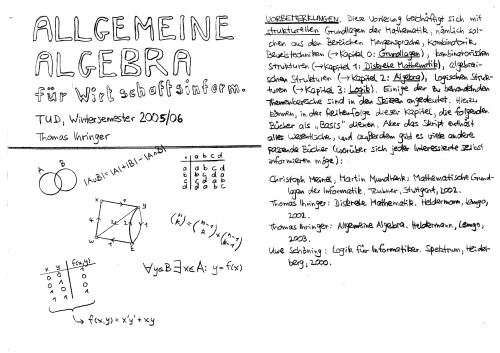 ALLGEMEINE
ALGEBRA
für Wirtschaftsinform.
TUD, Wintersemester 2005/06
Thomas Ihringer
A B
|A∪B|=|A|+|B|-|A∩B|
· a b c d
a a b c d
x y
4
w z
∀y∈B ∃x∈A: y=f(x)
x y f(x,y)
0 0 1
0 1 0
1 0 0
1 1 1
f(x,y) = x'y' + xy
VORBEMERKUNGEN. Diese Vorlesung beschäftigt sich mit
strukturellen Grundlagen der Mathematik, nämlich sol-
chen aus den Bereichen Mengensprache, Kombinatorik,
Beweistechniken (→Kapitel 0: Grundlagen), kombinatorischen
Strukturen (→Kapitel 1: Diskrete Mathematik), algebrai-
schen Strukturen (→Kapitel 2: Algebra), logischen Struk-
turen (→Kapitel 3: Logik). Einige der zu behandelnden
Themenbereiche sind in den Skizzen angedeutet. Hierzu
können, in der Reihenfolge dieser Kapitel, die folgenden
Bücher als "Basis" dienen. Aber das Skript enthält
alles Wesentliche, und außerdem gibt es viele andere
passende Bücher (worüber sich jeder Interessierte selbst
informieren möge):
Christoph Meinel, Martin Mundhenk: Mathematische Grund-
lagen der Informatik. Teubner, Stuttgart, 2002.
Thomas Ihringer: Diskrete Mathematik. Heldermann, Lemgo,
2002.
Thomas Ihringer: Allgemeine Algebra. Heldermann, Lemgo,
2003.
Uwe Schöning: Logik für Informatiker. Spektrum, Heidel-
berg, 2000.